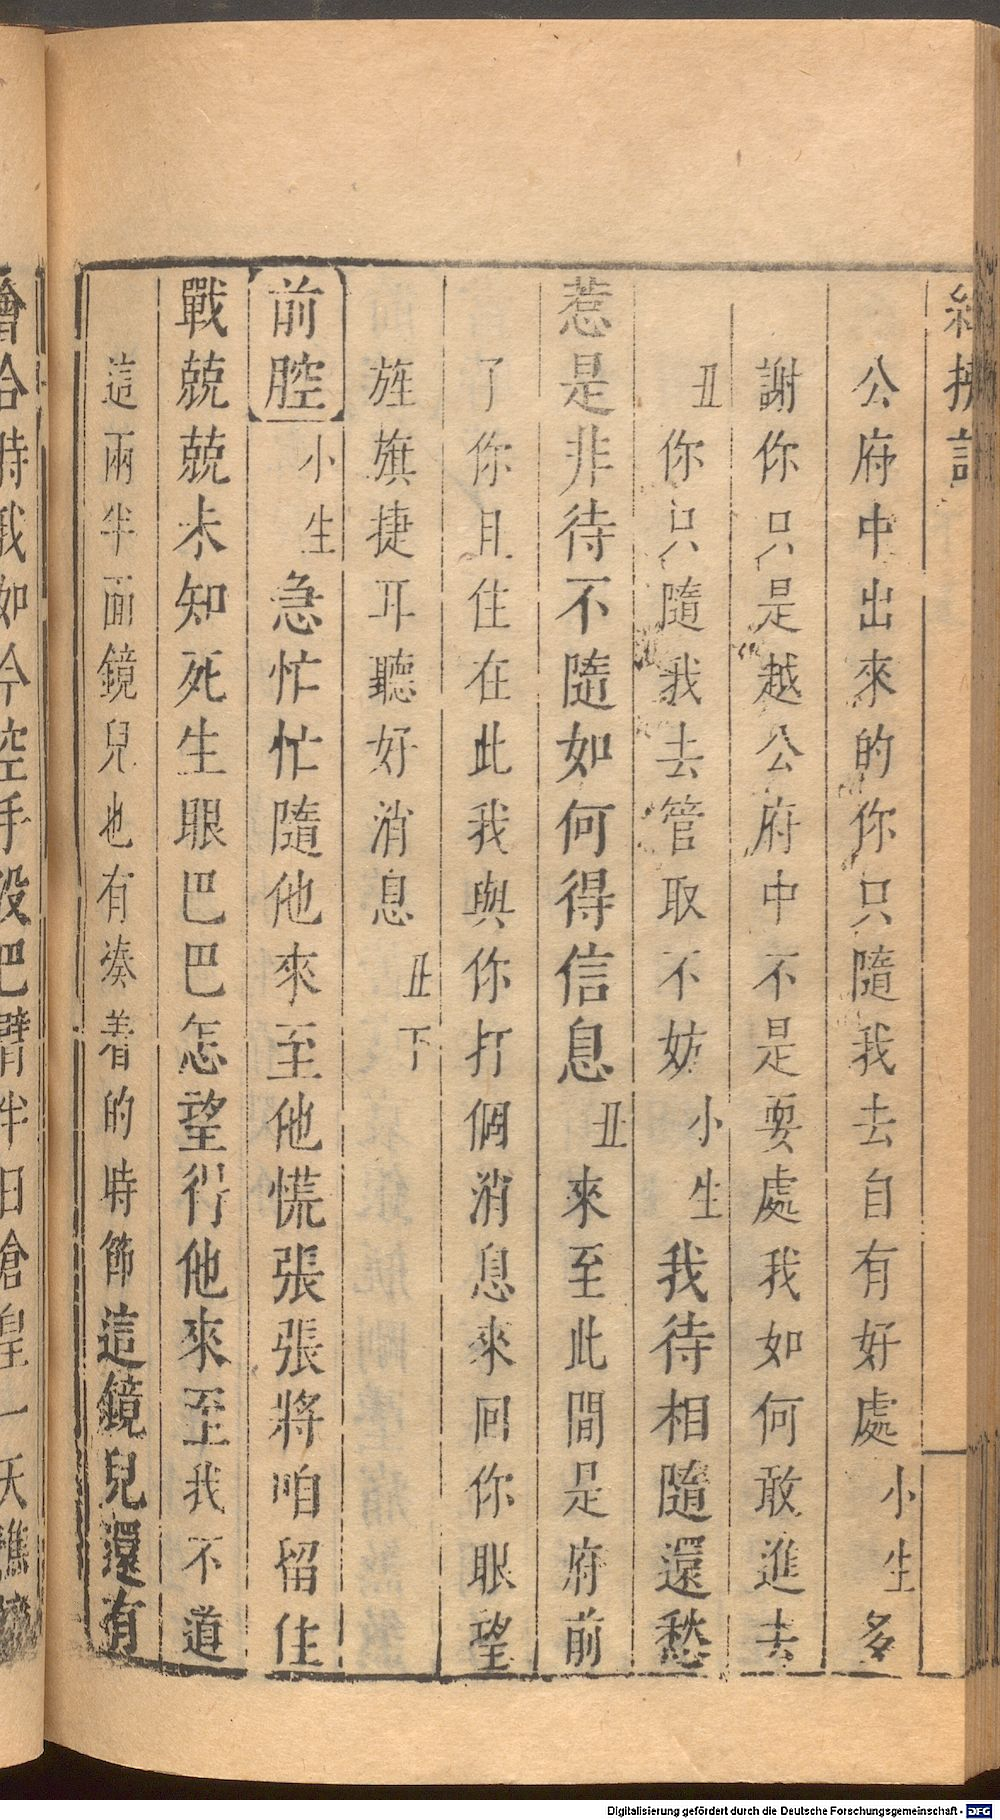 紅拂記
公府中出來的你只隨我去自有好處小生多
謝你只是越公府中不是耍處我如何敢進去
丑你只隨我去管取不妨小生我待相隨還愁
惹是非待不隨如何得信息丑來至此間是府前
了你且住在此我與你打個消息來回你眼望
旌旗捷耳聽好消息丑下
前腔小生急忙忙隨他來至他慌張張將咱留住
戰兢兢未知死生眼巴巴怎望得他來至我不道
這兩半面鏡兒也有湊着的時節這鏡兒還有
合時我如今空手沒把臂半日愴皇一天憔
Digitalisierung gefördert durch die Deutsche Forschungsgemeinschaft - DFG